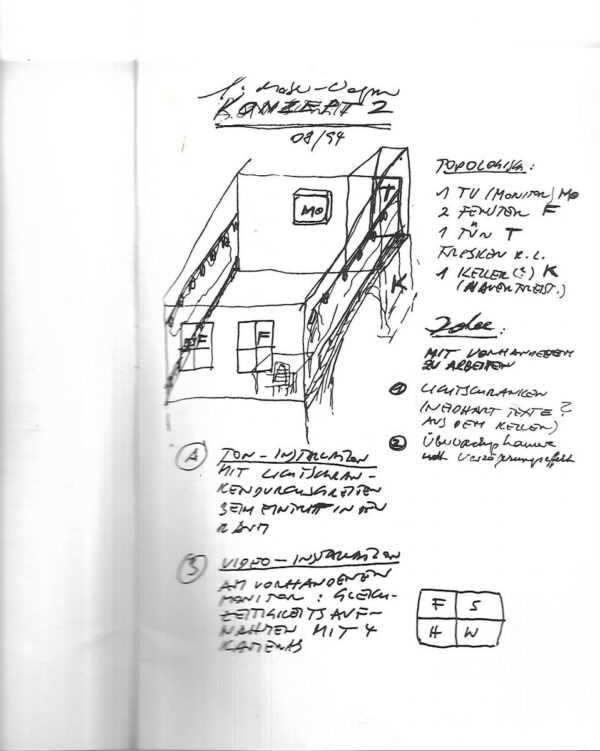 KONZEPT 2
08/94
MO
T
K
F
F
TOPOLOGISCH:
1 TV (MONITOR) MO
2 FENSTER F
1 TÜR T
FRESKEN R. L.
1 KELLER(?) K
Idee:
MIT VORHANDENEM
ZU ARBEITEN
1 LICHTSCHRANKEN
(NEIDHART TEXTE?
AUS DEM KELLER)
2 Überwachungskamera
A TON-INSTALLATION
MIT LICHTSCHRAN-
KENDURCHSCHREITEN
BEIM EINTRITT IN DEN
RAUM
B VIDEO-INSTALLATION
AM VORHANDENEN
MONITOR: GLEICH-
ZEITIGKEITSAUF-
NAHMEN MIT 4
KAMERAS
F S
H W